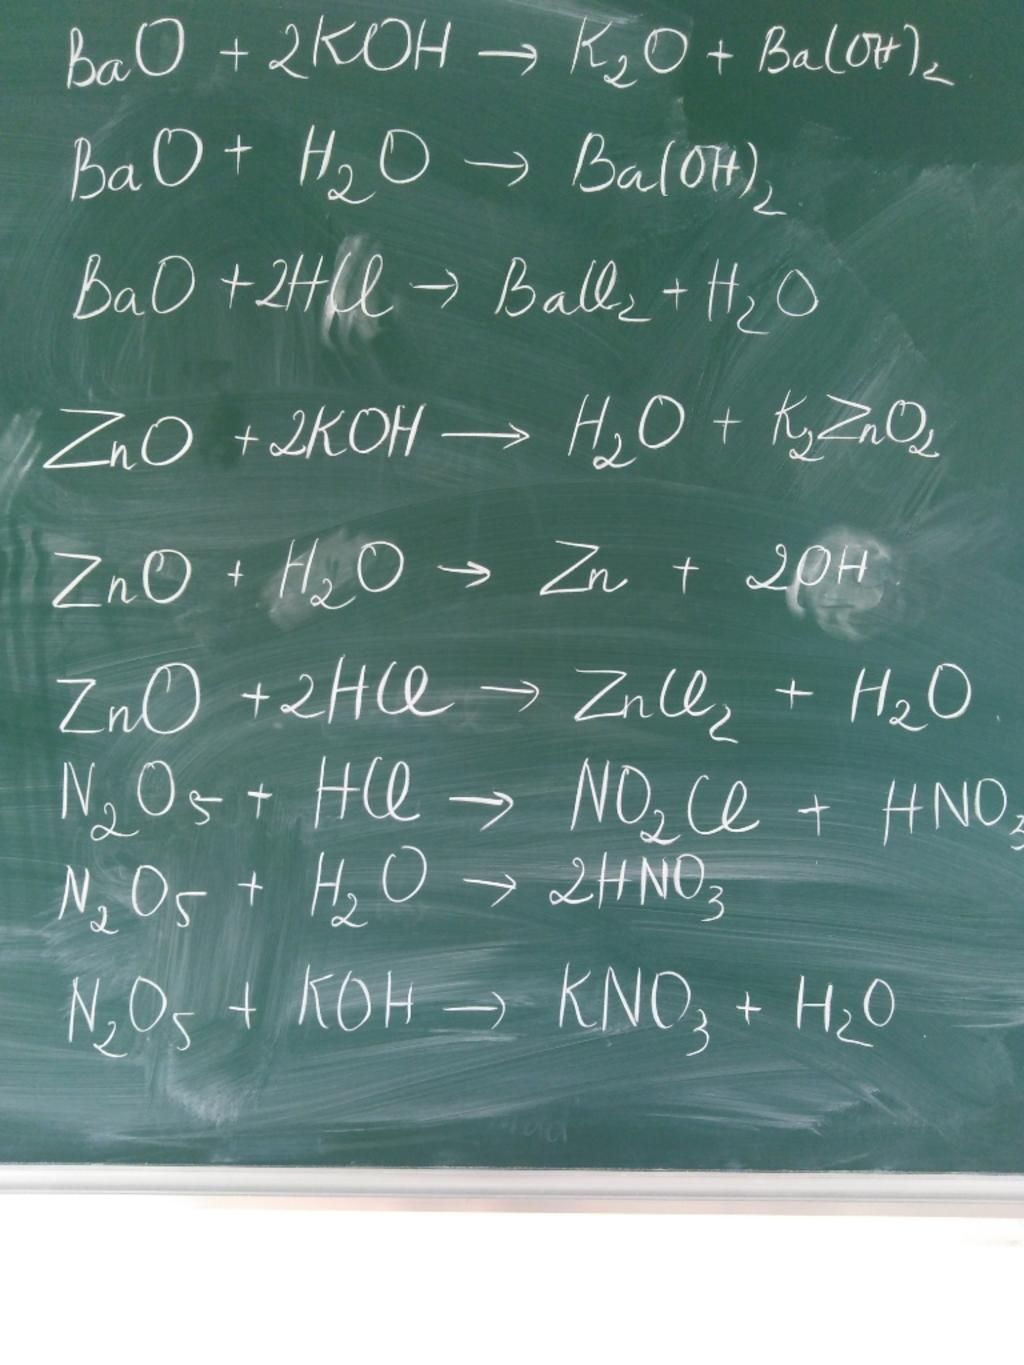 BaO + 2KOH → K₂O + Ba(OH)₂
BaO + H₂O → Ba(OH)₂
BaO + 2HCl → BaCl₂ + H₂O
ZnO + 2KOH → H₂O + K₂ZnO₂
ZnO + H₂O → Zn + 2OH
ZnO + 2HCl → ZnCl₂ + H₂O
N₂O₅ + HCl → NO₂Cl + HNO₃
N₂O₅ + H₂O → 2HNO₃
N₂O₅ + KOH → KNO₃ + H₂O